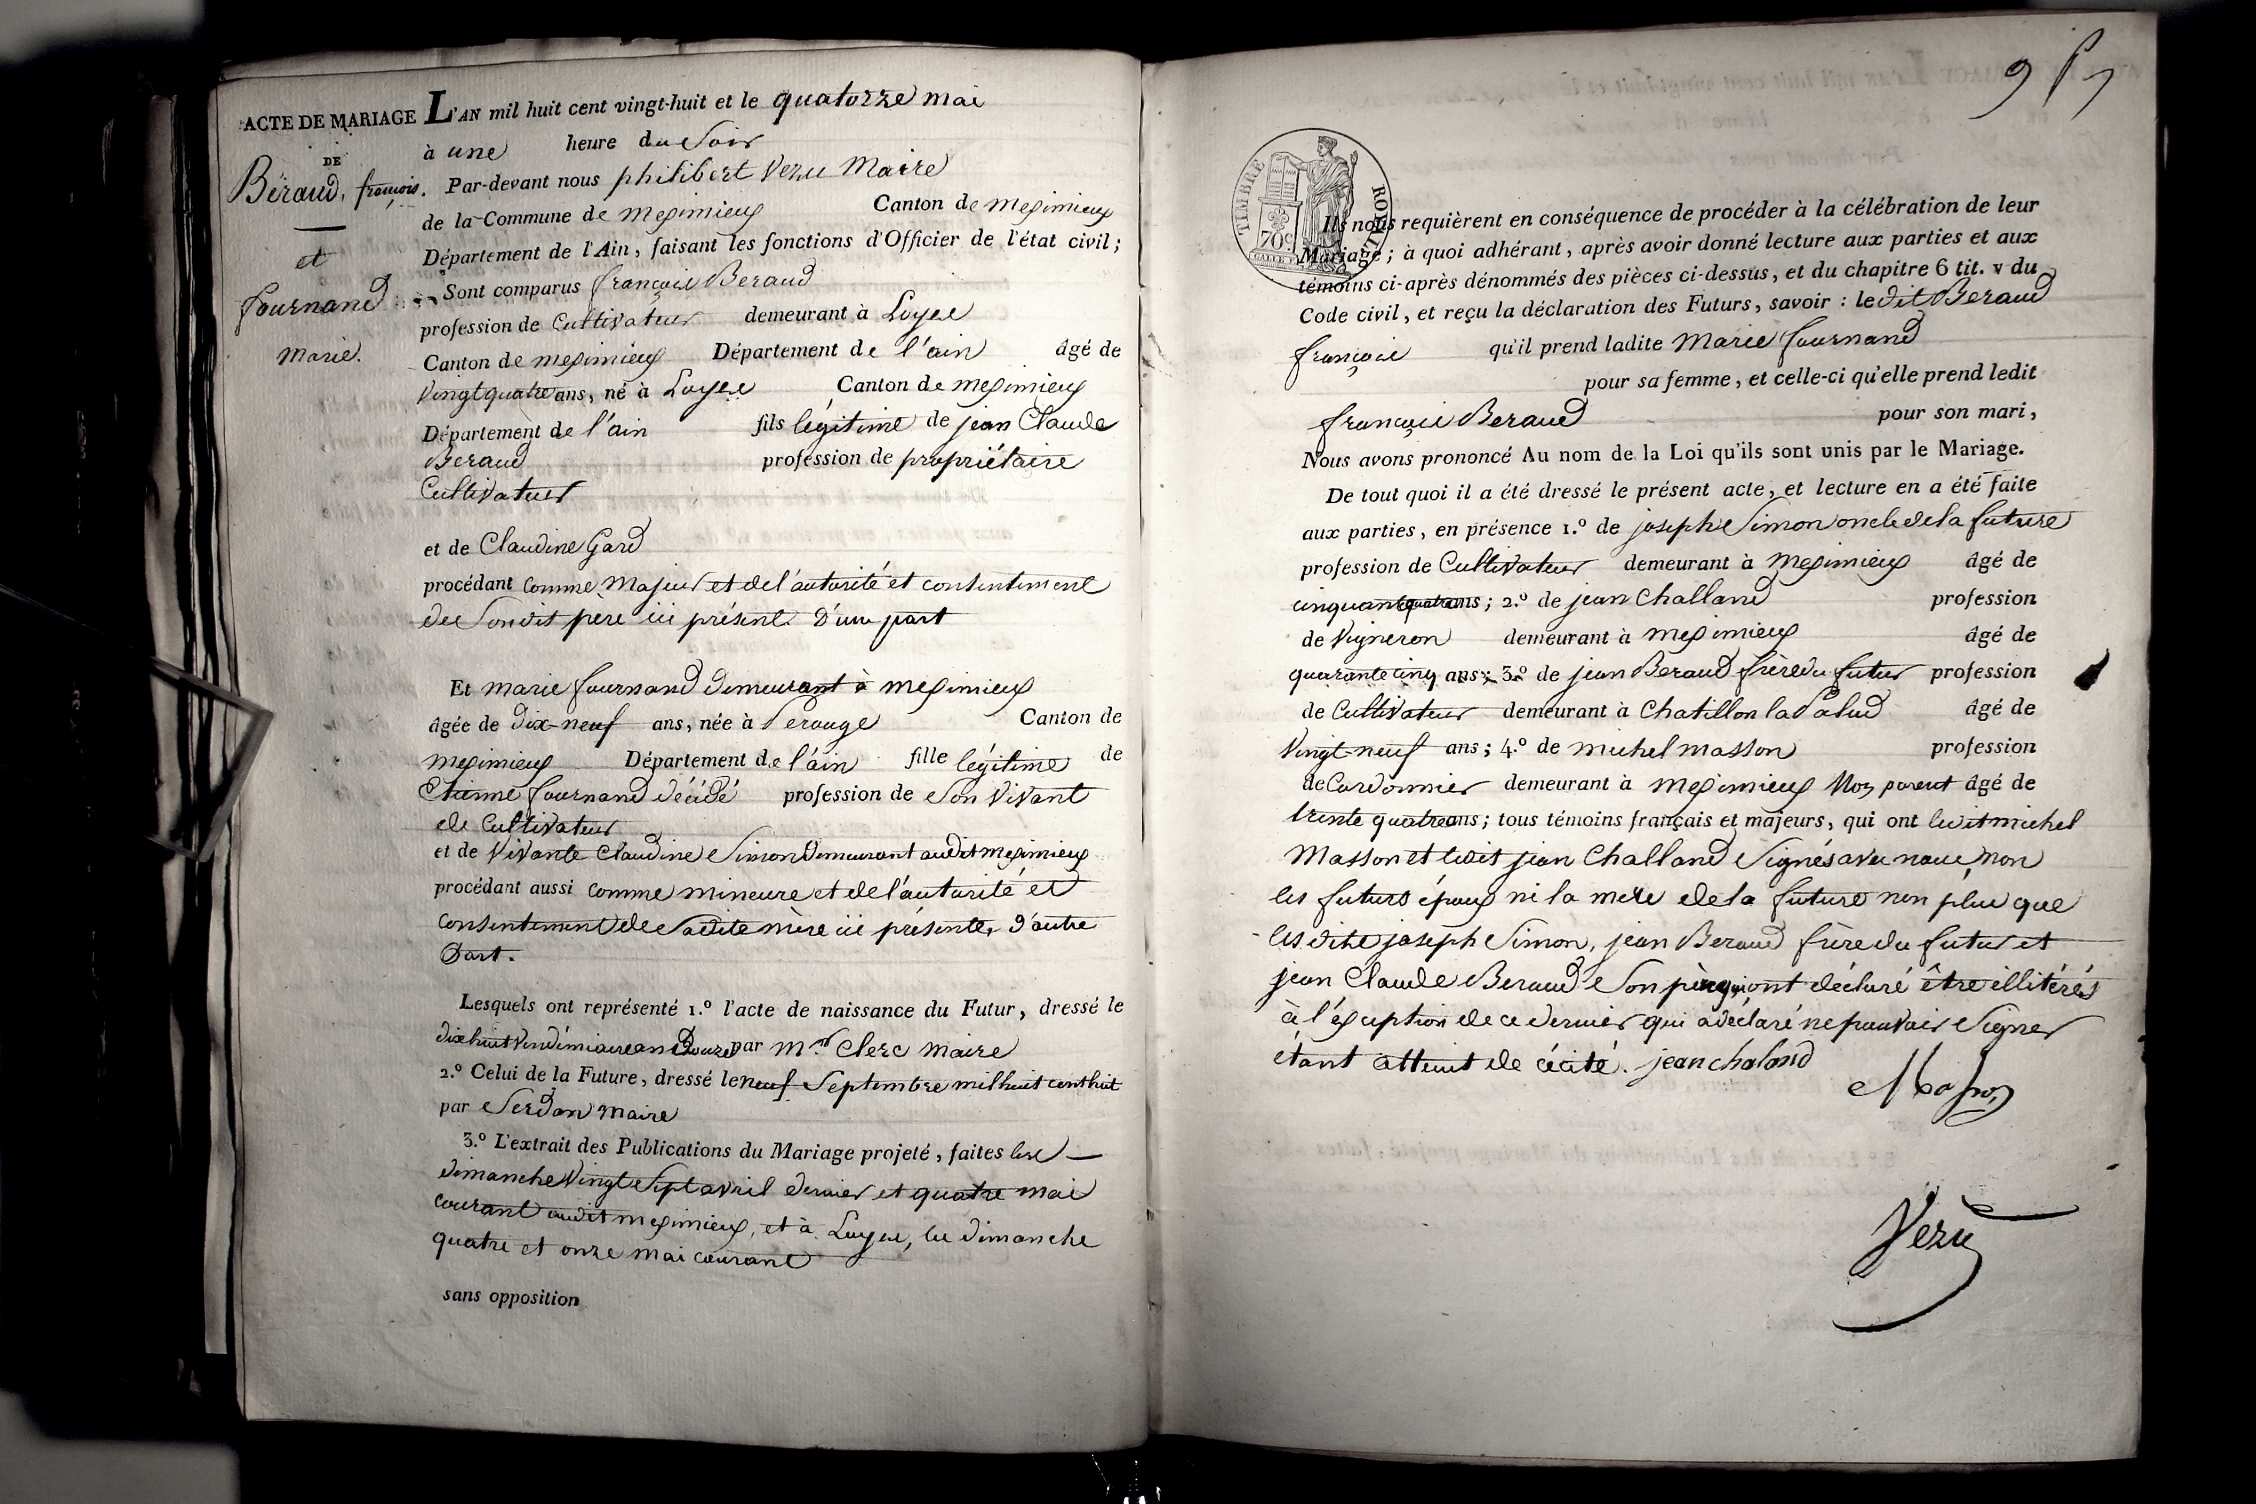 ACTE DE MARIAGE
DE
Béraud, françois.
et
fournand
marie.
L'AN mil huit cent vingt-huit et le quatorze mai
à une heure du soir
Par-devant nous philibert Vezu Maire
de la Commune de meximieux Canton de meximieux
Département de l'Ain, faisant les fonctions d'Officier de l'état civil;
Sont comparus françois Beraud
profession de Cultivateur demeurant à Loyes
Canton de meximieux Département de l'ain âgé de
Vingt quatre ans, né à Loyes Canton de meximieux
Département de l'ain fils légitime de jean Claude
Beraud profession de propriétaire
Cultivateur
et de Claudine Gard
procédant comme Majeur et de l'autorité et consentement
de Son dit pere ici présent. D'une part
Et marie fournand demeurant à meximieux
âgée de dix-neuf ans, née à Perouge Canton de
meximieux Département de l'ain fille légitime de
Etienne fournand décédé profession de Son Vivant
de Cultivateur
et de Vivante Claudine Simon demeurant audit meximieux
procédant aussi comme mineure et de l'autorité et
consentement de Sadite mère ici présente, D'autre
Part.
Lesquels ont représenté 1.º l'acte de naissance du Futur, dressé le
dix huit Vendémiaire an Douze par Mr. Clerc maire
2.º Celui de la Future, dressé le neuf Septembre mil huit cent huit
par Serdan maire
3.º L'extrait des Publications du Mariage projeté, faites les
dimanche Vingt Sept avril dernier et quatre mai
courant audit meximieux, et à Loyes, les dimanche
quatre et onze mai courant
sans opposition
TIMBRE ROYAL
70 c.
Ils nous requièrent en conséquence de procéder à la célébration de leur
Mariage; à quoi adhérant, après avoir donné lecture aux parties et aux
témoins ci-après dénommés des pièces ci-dessus, et du chapitre 6 tit. v du
Code civil, et reçu la déclaration des Futurs, savoir : le dit Beraud
françois qu'il prend ladite Marie fournand
pour sa femme, et celle-ci qu'elle prend ledit
françois Beraud pour son mari,
Nous avons prononcé Au nom de la Loi qu'ils sont unis par le Mariage.
De tout quoi il a été dressé le présent acte, et lecture en a été faite
aux parties, en présence 1.º de joseph Simon oncle de la future
profession de Cultivateur demeurant à meximieux âgé de
cinquante quatre ans; 2.º de jean Challand profession
de Vigneron demeurant à meximieux âgé de
quarante cinq ans; 3.º de jean Beraud frère du futur profession
de Cultivateur demeurant à Chatillon la Palud âgé de
Vingt-neuf ans; 4.º de michel masson profession
de Cordonnier demeurant à meximieux Non parent âgé de
trente quatre ans; tous témoins français et majeurs, qui ont ledit michel
Masson et ledit jean Challand Signés avec nous, non
les futurs époux ni la mere de la future non plus que
lesdits joseph Simon, jean Beraud frère du futur et
jean Claude Beraud Son père qui ont déclaré être illitérés
à l'exception de ce dernier qui a déclaré ne pouvoir Signer
étant atteint de cécité. jean chaland
Masson
Vezu